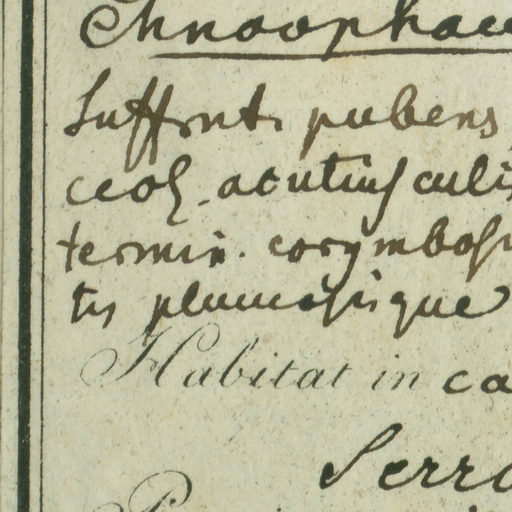 Chnoophae
Suffrut. pubens,
ceol. acutiusculis
termin. corymbosi
tis plumosisque
Habitat in ca
Serra